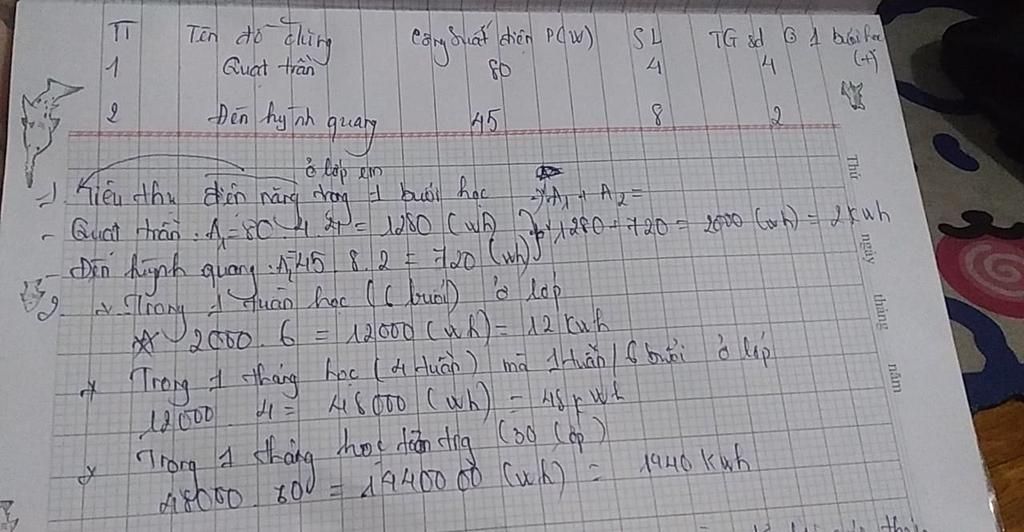 TT Tên đồ dùng Công suất điện P(W) SL TG sd @ 1 buổi học (t)
1 Quạt trần 80 4 4
2 Đèn huỳnh quang 45 8 2
ở lớp em
=) Tiêu thụ điện năng trong 1 buổi học => A1 + A2 =
- Quạt trần: A1 = 80. 4. 4 = 1280 (wh) 1280 + 720 = 2000 (wh) = 2kwh
- Đèn huỳnh quang: A2 = 45 8. 2 = 720 (wh)
2. * Trong 1 tuần học (6 buổi) ở lớp
2000. 6 = 12000 (wh) = 12 kwh
* Trong 1 tháng học (4 tuần) mà 1 tuần/6 buổi ở lớp
12000. 4 = 48000 (wh) = 48kwh
* Trong 1 tháng học (30 lớp)
48000. 30 = 1440000 (wh) = 1440 kwh
Thứ ngày tháng năm